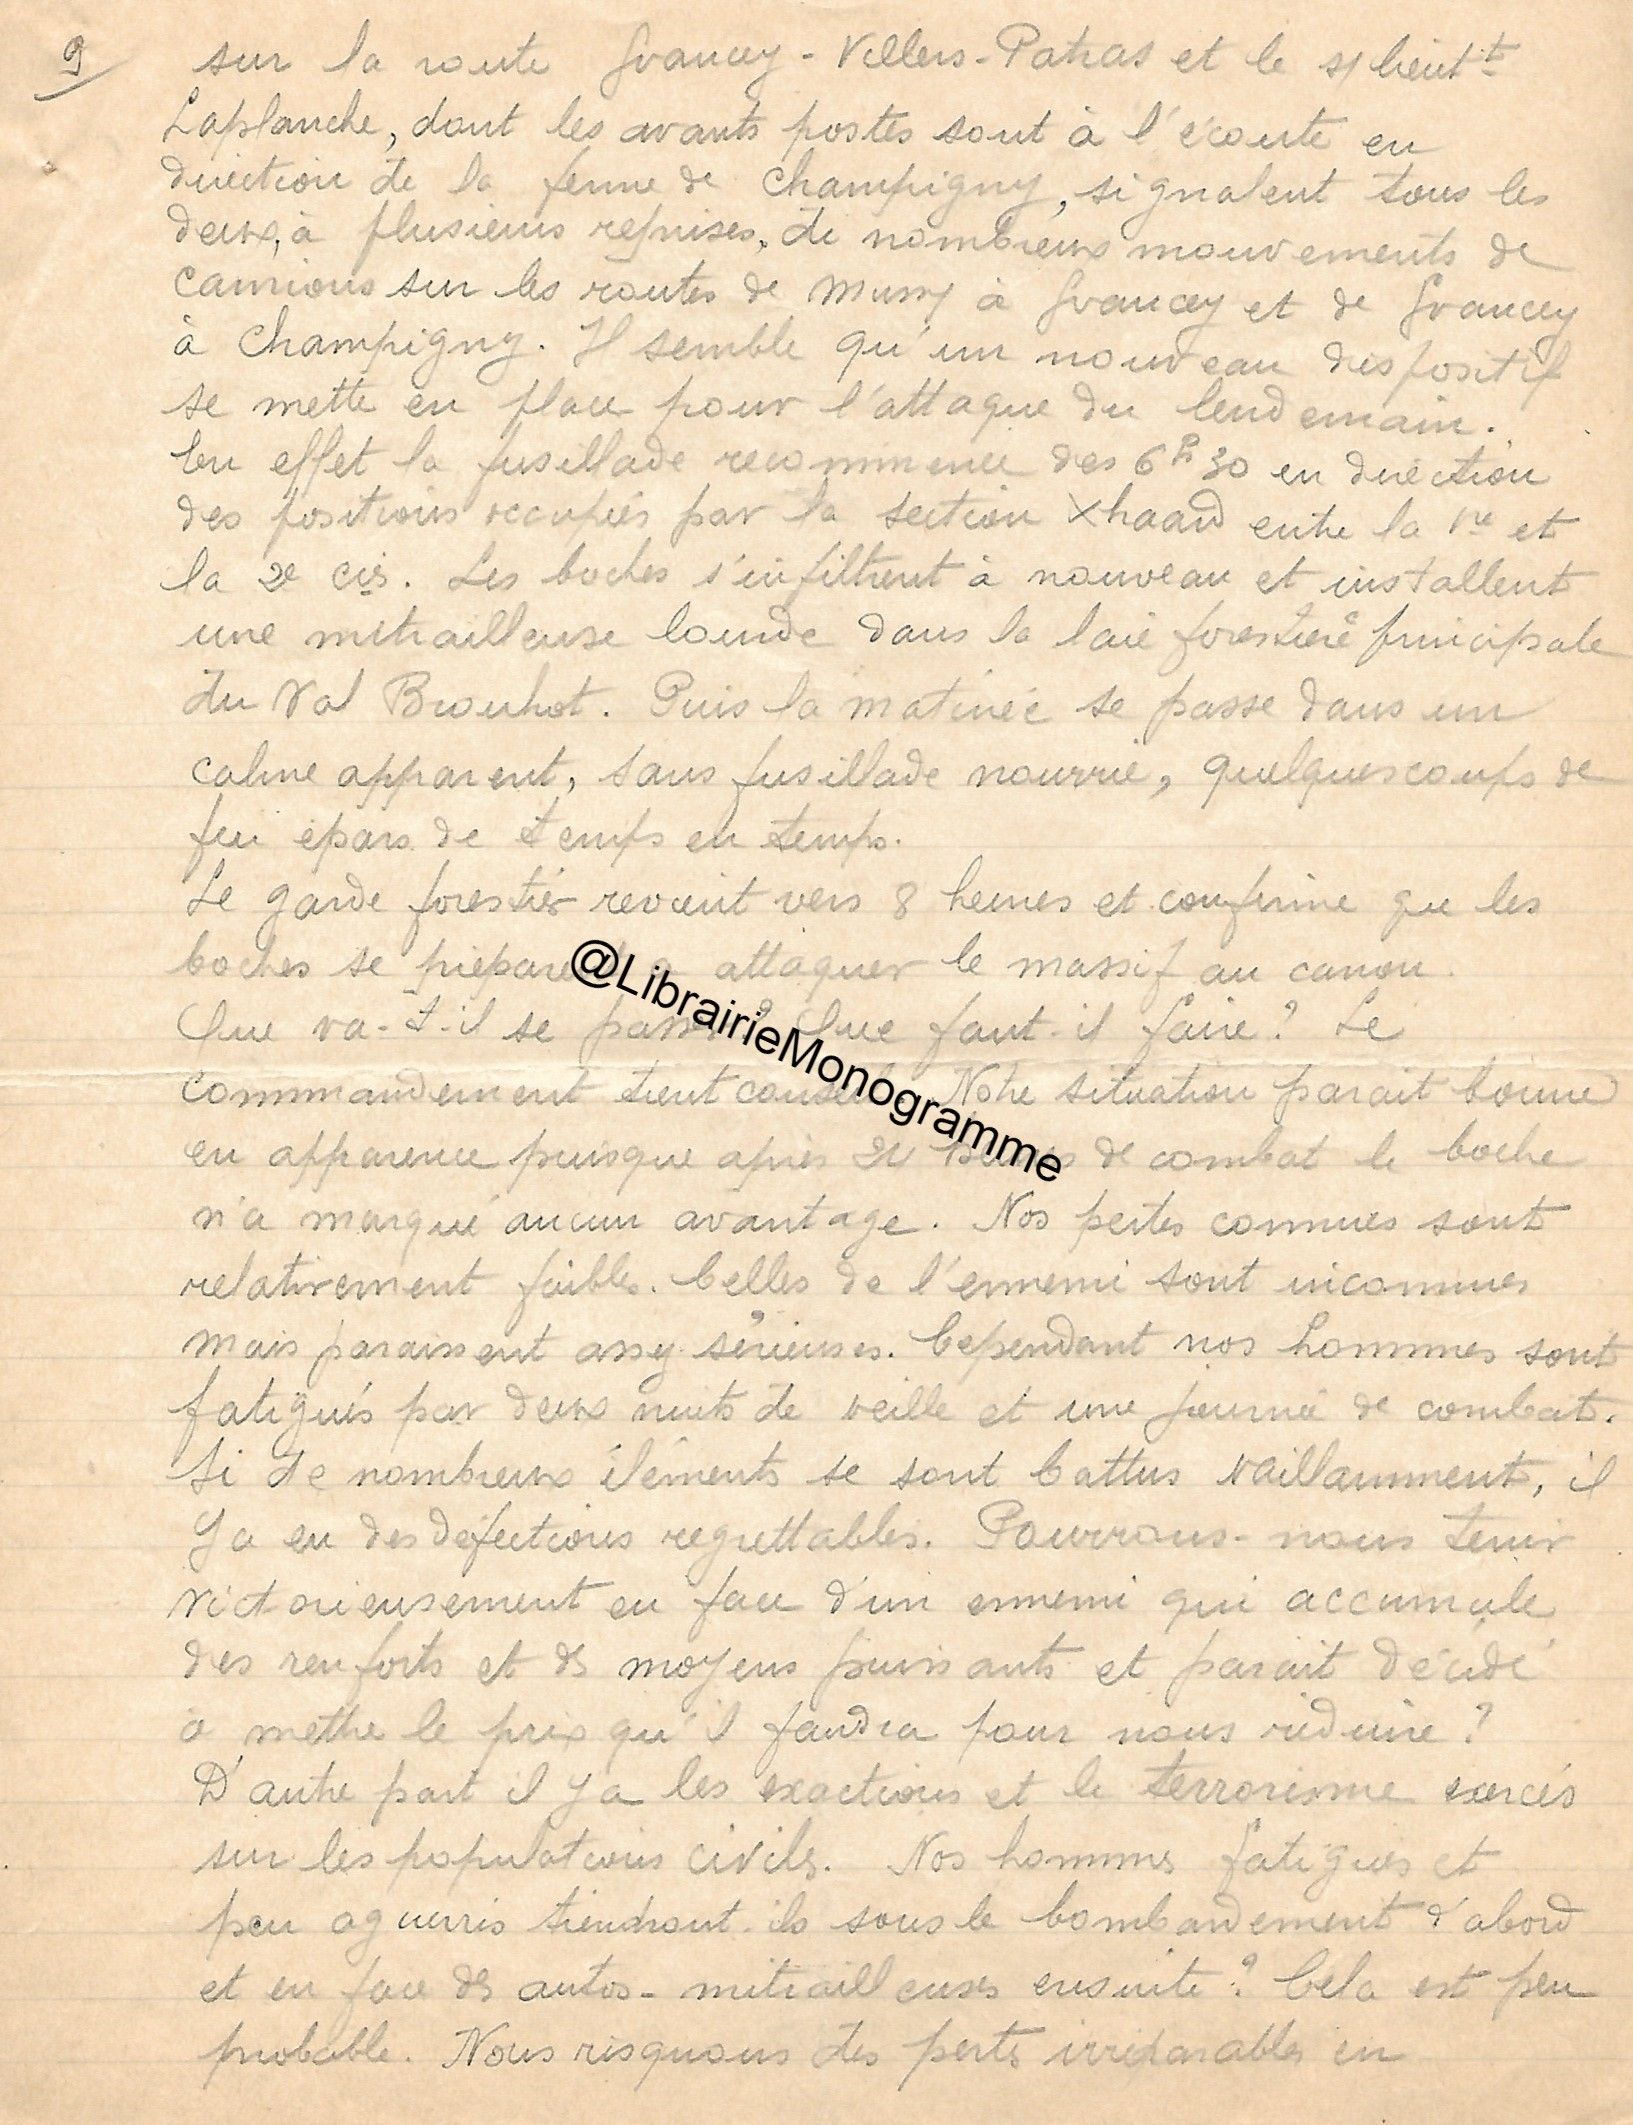 9
sur la route Grancey - Villers-Patras et le s/ lieut^t
Laplanche, dont les avants postes sont à l'écoute en
direction de la ferme de Champigny, signalent tous les
deux, à plusieurs reprises, de nombreux mouvements de
camions sur les routes de Mussy à Grancey et de Grancey
à Champigny. Il semble qu'un nouveau dispositif
se mette en place pour l'attaque du lendemain.
En effet la fusillade recommence dès 6h30 en direction
des positions occupées par la section Xhaard entre la 1re et
la 2e cie. Les boches s'infiltrent à nouveau et installent
une mitrailleuse lourde dans la laie forestière principale
du Val Brouhot. Puis la matinée se passe dans un
calme apparent, sans fusillade nourrie, quelques coups de
feu épars de temps en temps.
Le garde forestier revient vers 8 heures et confirme que les
boches se préparent à attaquer le massif au canon.
Que va-t-il se passer? Que faut-il faire? Le
commandement tient conseil. Notre situation parait bonne
en apparence puisque après 24 heures de combat le boche
n'a marqué aucun avantage. Nos pertes connues sont
relativement faibles. Celles de l'ennemi sont inconnues
mais paraissent assez sérieuses. Cependant nos hommes sont
fatigués par deux nuits de veille et une journée de combat.
Si de nombreux éléments se sont battus vaillamment, il
y a eu des défections regrettables. Pourrons-nous tenir
victorieusement en face d'un ennemi qui accumule
des renforts et des moyens puissants et parait décidé
à mettre le prix qu'il faudra pour nous réduire?
D'autre part il y a les exactions et le terrorisme exercés
sur les populations civiles. Nos hommes fatigués et
peu aguerris tiendront-ils sous le bombardement d'abord
et en face des autos-mitrailleuses ensuite? Cela est peu
probable. Nous risquons des pertes irréparables en
@LibrairieMonogramme